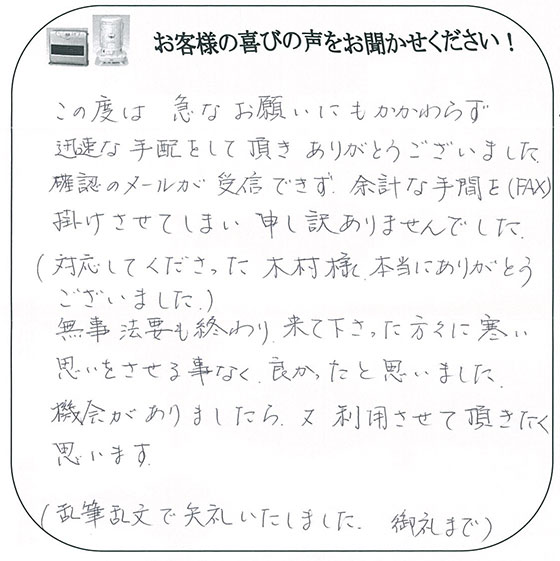 お客様の喜びの声をお聞かせください！
この度は 急な お願いにもかかわらず
迅速な 手配をして 頂き ありがとうございました.
確認のメールが 受信 できず. 余計な 手間を(FAX)
掛けさせてしまい 申し訳ありませんでした.
(対応してくださった 木村様、本当にありがとう
ございました.)
無事 法要も終わり. 来て下さった方々に 寒い
思いをさせる事なく. 良かったと思いました.
機会がありましたら. 又 利用させて頂きたく
思います.
(乱筆乱文で 失礼いたしました. 御礼まで)